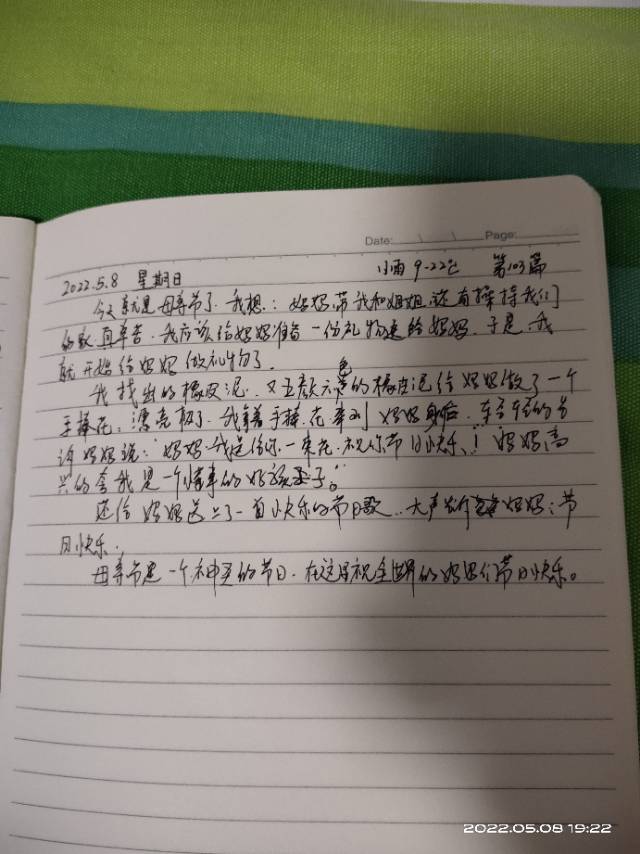 Date: \ \ Page:
2022.5.8 星期日 小雨 9-22℃ 第103篇
今天就是母亲节了.我想:妈妈带我和姐姐,还有操持我们
的家,真辛苦.我应该给妈妈准备一份礼物送给妈妈.于是,我
就开始给妈妈做礼物了.
我找出的橡皮泥.又五颜六色的橡皮泥给妈妈做了一个
手捧花,漂亮极了.我拿着手捧花来到妈妈身后,轻轻的告
诉妈妈说:“妈妈我送给你一束花.祝你节日快乐!”妈妈高
兴的夸我是一个懂事的好孩子。
还给妈妈送上了一首快乐的节日歌.大声 妈妈:节
日快乐.
母亲节是一个神圣的节日.在这里祝全世界的妈妈们节日快乐。
2022.05.08 19:22